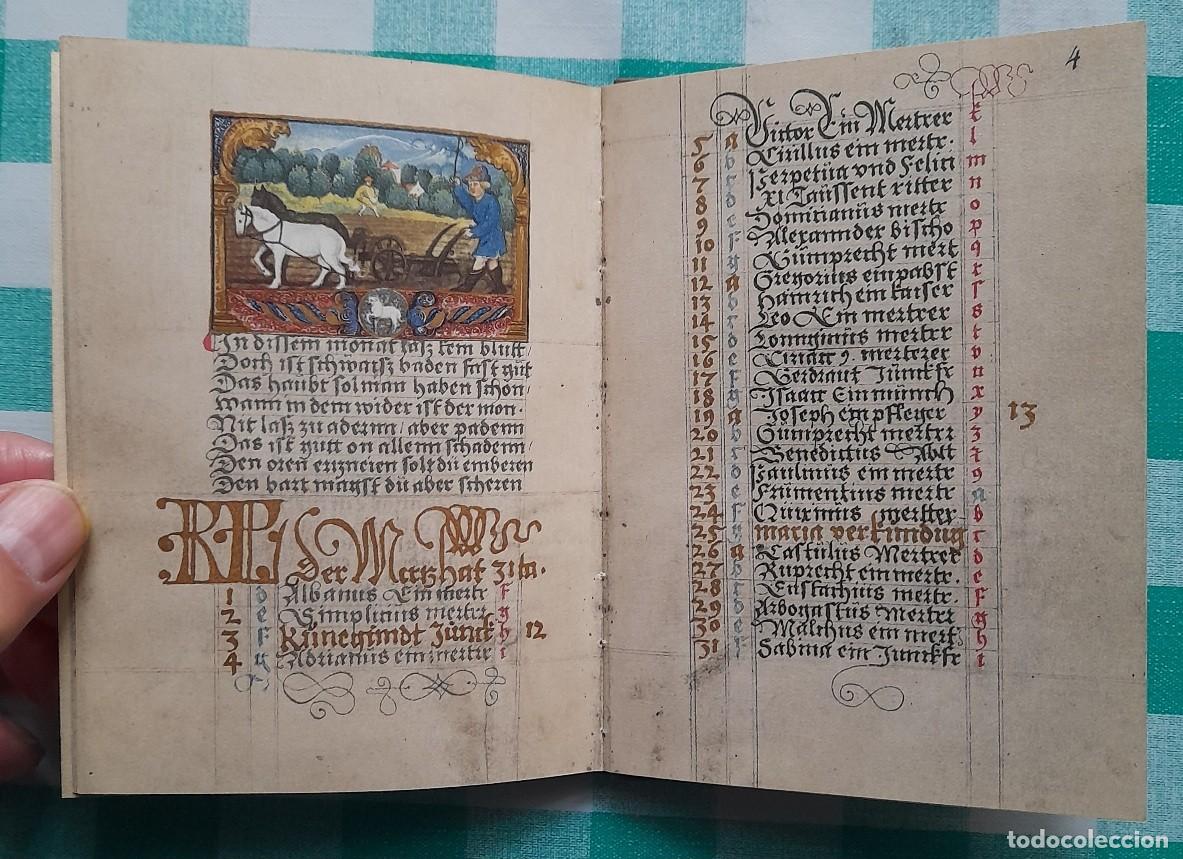 In dissem monat lasz kem blutt
Doch ist schwaisz baden fast gut
Das haubt sol man haben schon
wann in dem wider ist der mon.
Nit lasz zu adernn aber padenn
Das ist gutt on allenn schadenn
Den oren erizneien solt dü emberen
Den bart magst dü aber scheren
Der Mertz hat 31 ta.
1 d Albanus Ein mertr f
2 e Simplicius mertrr g
3 f Künegündt Jünck h 12
4 g Adrianüs ein mertrr i
4
k
5 a Victor Ein Mertrer l
6 b Cirillus ein mertr. m
7 c Perpetüa vnd Felici n
8 d XI Taüssent ritter o
9 e Domicianüs mertr p
10 f Alexannder bischo q
11 g Rümprecht mert r
12 a Gregorius ein pabst s
13 b Hainrich ein kaiser
14 c Leo Ein mertrer t
15 d Lonnginüs mertrr v
16 e Ciriacc9. merterer u
17 f Gerdraut Jünckfr x
18 g Isaacc Ein münch y
19 a Joseph ein pfleger 13
20 b Gumprecht mertrr z
21 c Benedictüs Abt
22 d Paulinüs ein mertr 9
23 e Frümentiüs mertr a
24 f Quirinüs mertter b
25 g maria verkündüg c
26 a Castülüs Mertrer d
27 b Ruprecht ein mertr. e
28 c Eustachiüs mertr f
29 d Arbogastüs Mertrr g
30 e Malchüs ein mert h
31 f Sabina ein Junckfr i
todocoleccion